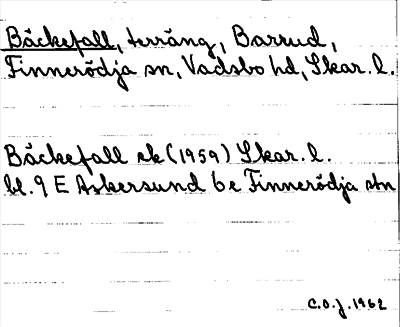 Bäckefall, terräng, Barrud,
Finnerödja sn, Vadsbo hd, Skar. l.
Bäckefall ek (1959) Skar. l.
bl. 9 E Askersund 6 e Finnerödja stn
C.O.J. 1962